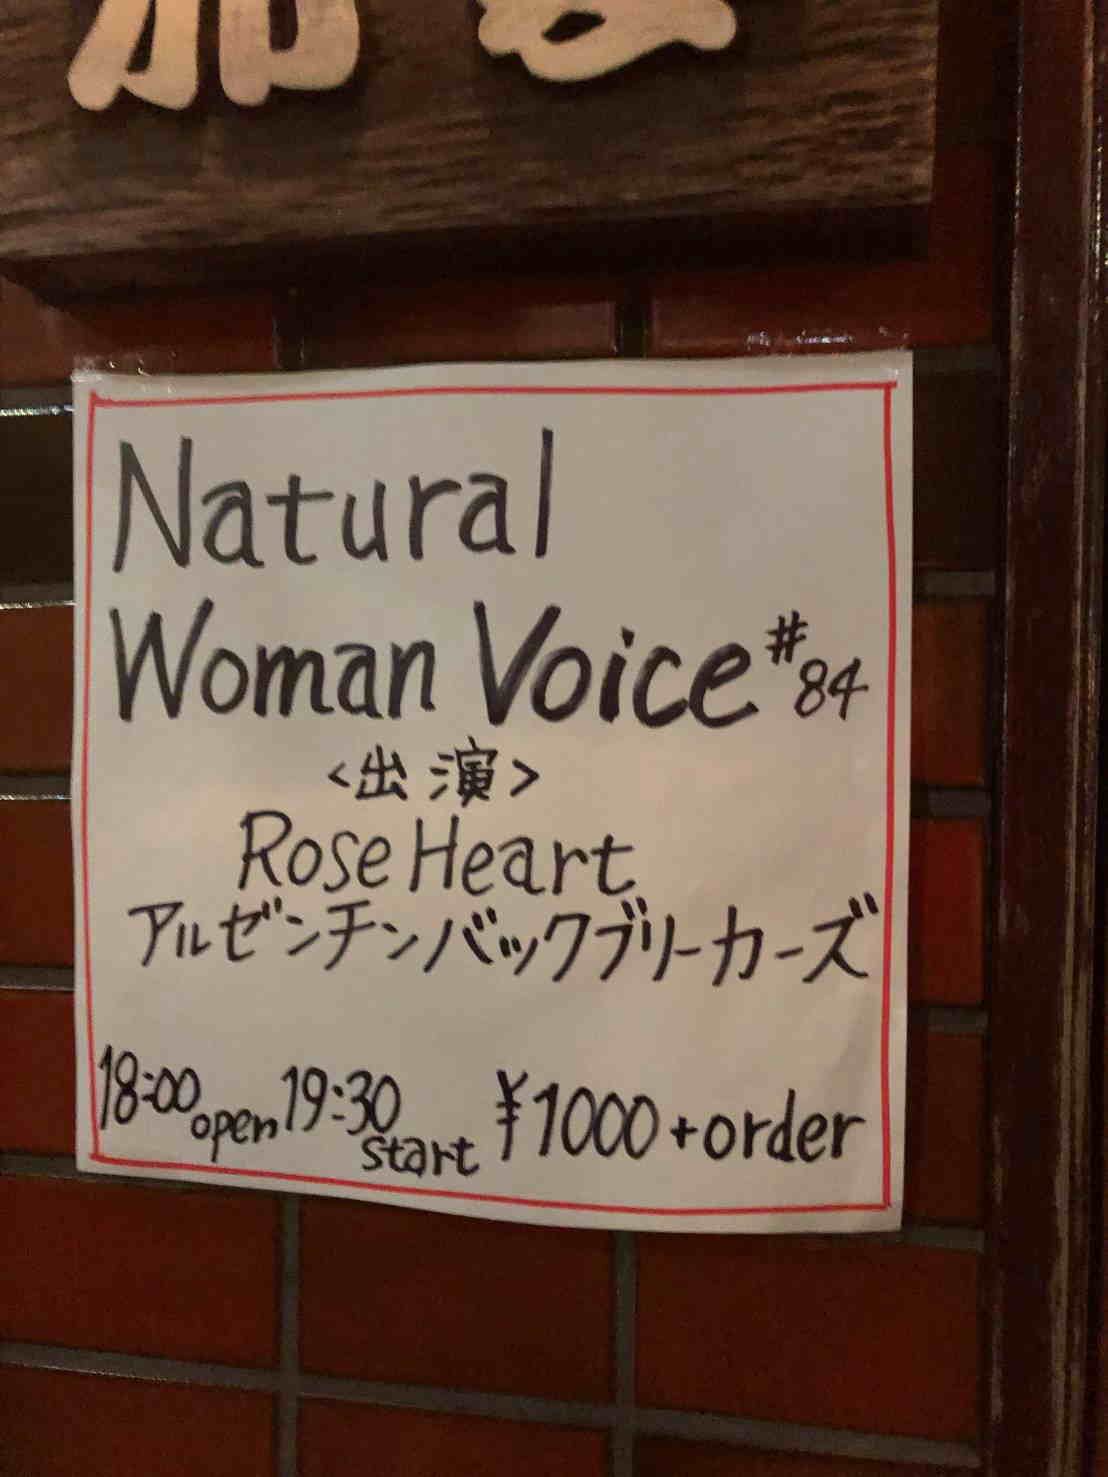 Natural
Woman Voice #84
<出演>
Rose Heart
アルゼンチンバックブリーカーズ
18:00 open 19:30 start ¥1000+order